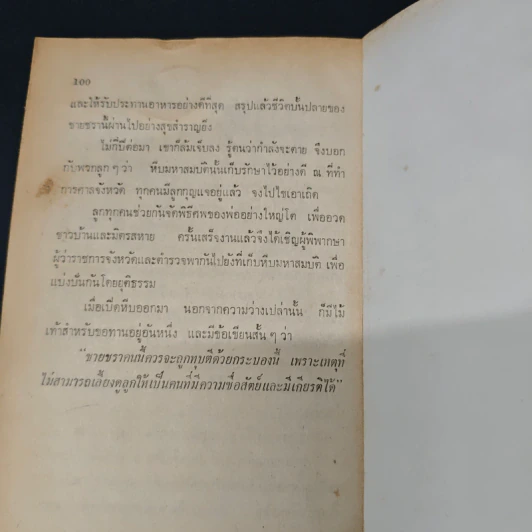 100
และให้รับประทานอาหารอย่างดีที่สุด สรุปแล้วชีวิตบั้นปลายของ
ชายชรานี้ผ่านไปอย่างสุขสำราญยิ่ง
ไม่กี่ปีต่อมา เขาก็ล้มเจ็บลง รู้ตนว่ากำลังจะตาย จึงบอก
กับพวกลูก ๆ ว่า หีบมหาสมบัตินั้นเก็บรักษาไว้อย่างดี ณ ที่ทำ
การศาลจังหวัด ทุกคนมีลูกกุญแจอยู่แล้ว จงไปไขเอาเถิด
ลูกทุกคนช่วยกันจัดพิธีศพของพ่ออย่างใหญ่โต เพื่ออวด
ชาวบ้านและมิตรสหาย ครั้นเสร็จงานแล้วจึงได้เชิญผู้พิพากษา
ผู้ว่าราชการจังหวัดและตำรวจพากันไปยังที่เก็บหีบมหาสมบัติ เพื่อ
แบ่งปันกันโดยยุติธรรม
เมื่อเปิดหีบออกมา นอกจากความว่างเปล่านั้น ก็มีไม้
เท้าสำหรับขอทานอยู่อันหนึ่ง และมีข้อเขียนสั้น ๆ ว่า
"ชายชราคนนี้ควรจะถูกทุบตีด้วยกระบองนี้ เพราะเหตุที่
ไม่สามารถเลี้ยงดูลูกให้เป็นคนที่มีความซื่อสัตย์และมีเกียรติได้"